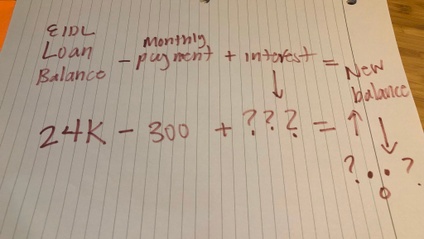 EIDL
Loan
Balance - Monthly payment + interest = New balance
24K - 300 + ??? = ? ?